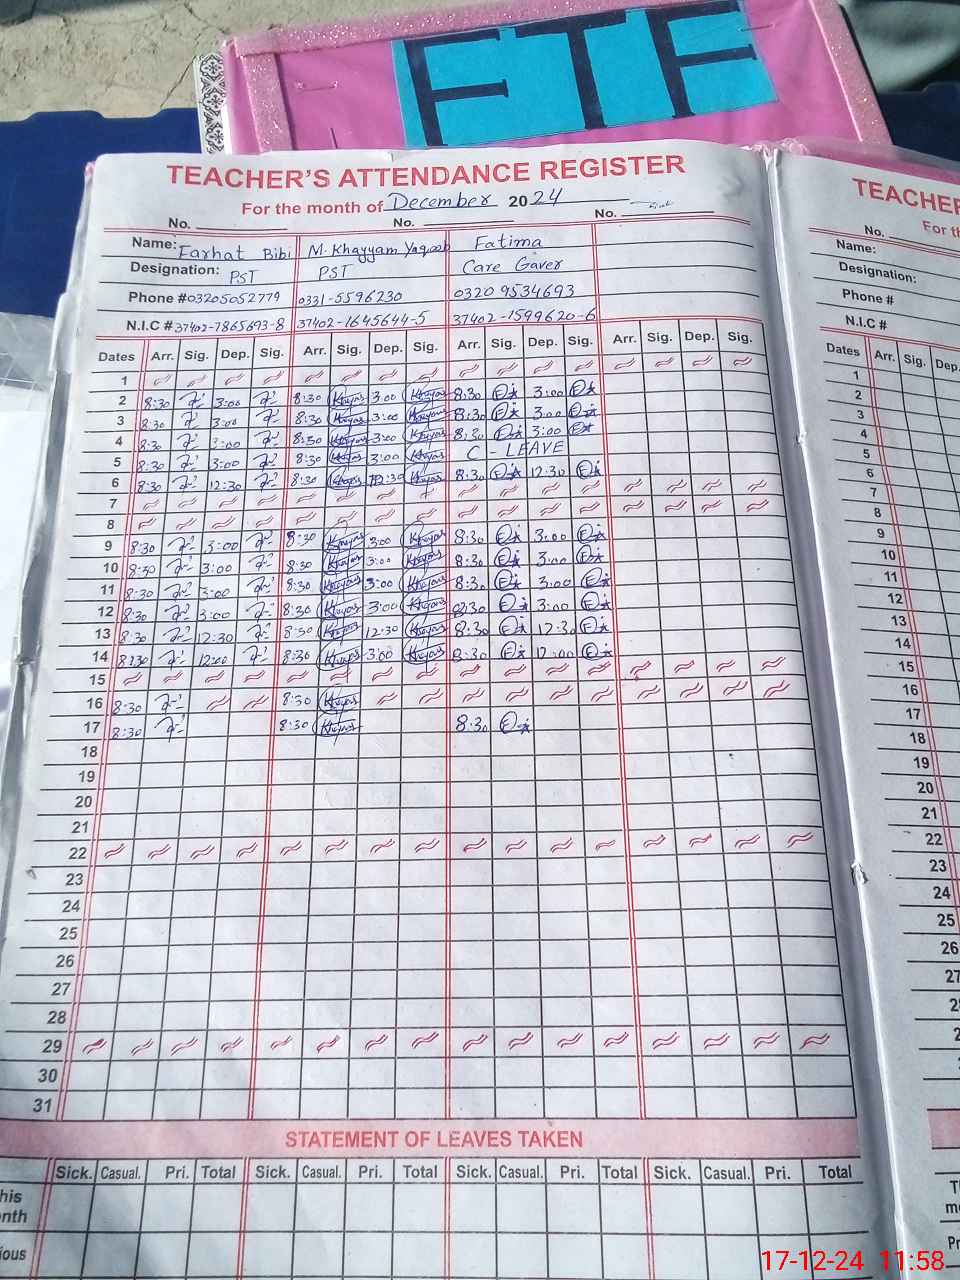 FTF
TEACHER'S ATTENDANCE REGISTER
For the month of December 2024
No. No. No.
Name: Farhat Bibi M. Khayyam Yaqoob Fatima
Designation: PST PST Care Gaver
Phone #03205052779 0331-5596230 0320 9534693
N.I.C # 37402-7865693-8 37402-1645644-5 37402-1599620-6
Dates Arr. Sig. Dep. Sig. Arr. Sig. Dep. Sig. Arr. Sig. Dep. Sig. Arr. Sig. Dep. Sig.
1
2 8:30 3:00 8:30 Khayas 3:00 Khayas 8:30 3:00
3 8:30 3:00 8:30 Khayas 3:00 Khayas 8:30 3:00
4 8:30 3:00 8:30 Khayas 3:00 Khayas 8:30 3:00
5 8:30 3:00 8:30 Khayas 3:00 Khayas C - LEAVE
6 8:30 12:30 8:30 Khayas 12:30 Khayas 8:30 12:30
7
8
9 8:30 3:00 8:30 Khayas 3:00 Khayas 8:30 3:00
10 8:30 3:00 8:30 Khayas 3:00 Khayas 8:30 3:00
11 8:30 3:00 8:30 Khayas 3:00 Khayas 8:30 3:00
12 8:30 3:00 8:30 Khayas 3:00 Khayas 8:30 3:00
13 8:30 12:30 8:30 Khayas 12:30 Khayas 8:30 12:30
14 8:30 12:00 8:30 Khayas 3:00 Khayas 8:30 12:00
15
16 8:30 8:30 Khayas
17 8:30 8:30 Khayas 8:30
18
19
20
21
22
23
24
25
26
27
28
29
30
31
STATEMENT OF LEAVES TAKEN
Sick. Casual. Pri. Total Sick. Casual. Pri. Total Sick. Casual. Pri. Total Sick. Casual. Pri. Total
his
nth
ious
TEACHER
For th
No.
Name:
Designation:
Phone #
N.I.C #
Dates Arr. Sig. Dep.
1
2
3
4
5
6
7
8
9
10
11
12
13
14
15
16
17
18
19
20
21
22
23
24
25
26
27
2
2
T
m
Pr
17-12-24 11:58